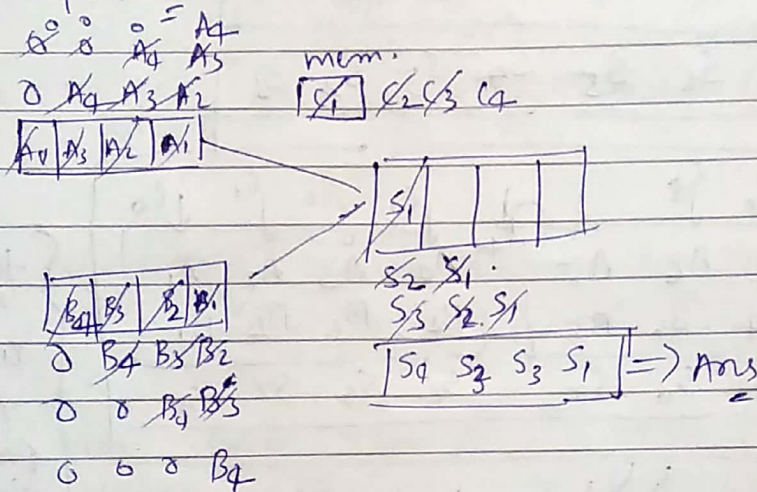 0 0 0 = A4
0 0 A4 A3
0 A4 A3 A2
A4 A3 A2 A1
mem.
C1 C2 C3 C4
S1
S2 S1.
S3 S2. S1
S4 S3 S3 S1 => Ans
B4 B3 B2 B1
0 B4 B3 B2
0 0 B4 B3
0 0 0 B4